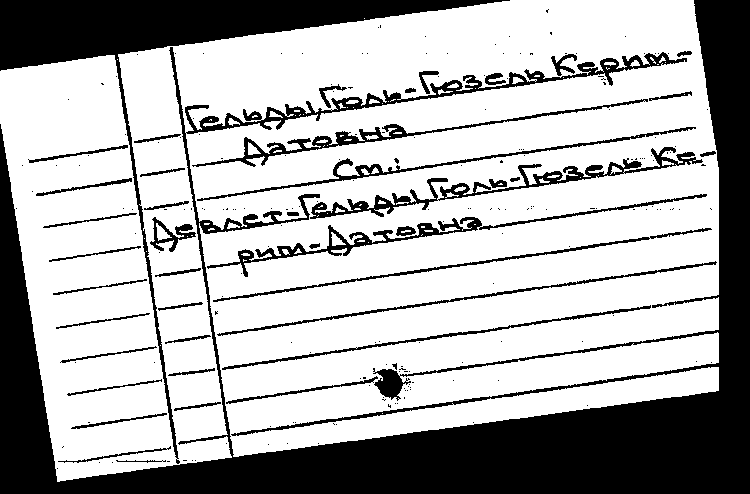 Гельды, Гюль-Гюзель Керим-
Датовна
Ст.:
Девлет-Гельды, Гюль-Гюзель Ке-
рим-Датовна